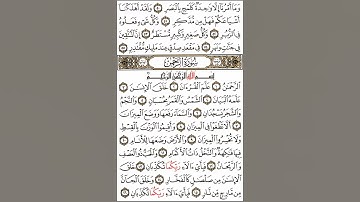 وَمَا أَمْرُنَا إِلَّا وَاحِدَةٌ كَلَمْحٍ بِالْبَصَرِ ۝ وَلَقَدْ أَهْلَكْنَا
أَشْيَاعَكُمْ فَهَلْ مِن مُّدَّكِرٍ ۝ وَكُلُّ شَيْءٍ فَعَلُوهُ
فِي الزُّبُرِ ۝ وَكُلُّ صَغِيرٍ وَكَبِيرٍ مُّسْتَطَرٌ ۝ إِنَّ الْمُتَّقِينَ
فِي جَنَّاتٍ وَنَهَرٍ ۝ فِي مَقْعَدِ صِدْقٍ عِندَ مَلِيكٍ مُّقْتَدِرٍ ۝
سُورَةُ الرَّحْمَٰن
بِسْمِ اللَّهِ الرَّحْمَٰنِ الرَّحِيمِ
الرَّحْمَٰنُ ۝ عَلَّمَ الْقُرْآنَ ۝ خَلَقَ الْإِنسَانَ ۝
عَلَّمَهُ الْبَيَانَ ۝ الشَّمْسُ وَالْقَمَرُ بِحُسْبَانٍ ۝ وَالنَّجْمُ
وَالشَّجَرُ يَسْجُدَانِ ۝ وَالسَّمَاءَ رَفَعَهَا وَوَضَعَ الْمِيزَانَ
۝ أَلَّا تَطْغَوْا فِي الْمِيزَانِ ۝ وَأَقِيمُوا الْوَزْنَ بِالْقِسْطِ
وَلَا تُخْسِرُوا الْمِيزَانَ ۝ وَالْأَرْضَ وَضَعَهَا لِلْأَنَامِ ۝
فِيهَا فَاكِهَةٌ وَالنَّخْلُ ذَاتُ الْأَكْمَامِ ۝ وَالْحَبُّ ذُو الْعَصْفِ
وَالرَّيْحَانُ ۝ فَبِأَيِّ آلَاءِ رَبِّكُمَا تُكَذِّبَانِ ۝ خَلَقَ الْإِنسَانَ
مِن صَلْصَالٍ كَالْفَخَّارِ ۝ وَخَلَقَ الْجَانَّ
مِن مَّارِجٍ مِّن نَّارٍ ۝ فَبِأَيِّ آلَاءِ رَبِّكُمَا تُكَذِّبَانِ ۝